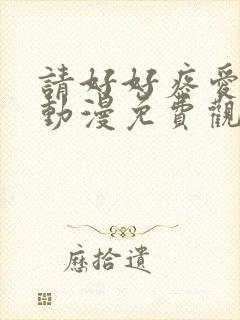 請好好疼愛
動漫免費觀
歷拾遺